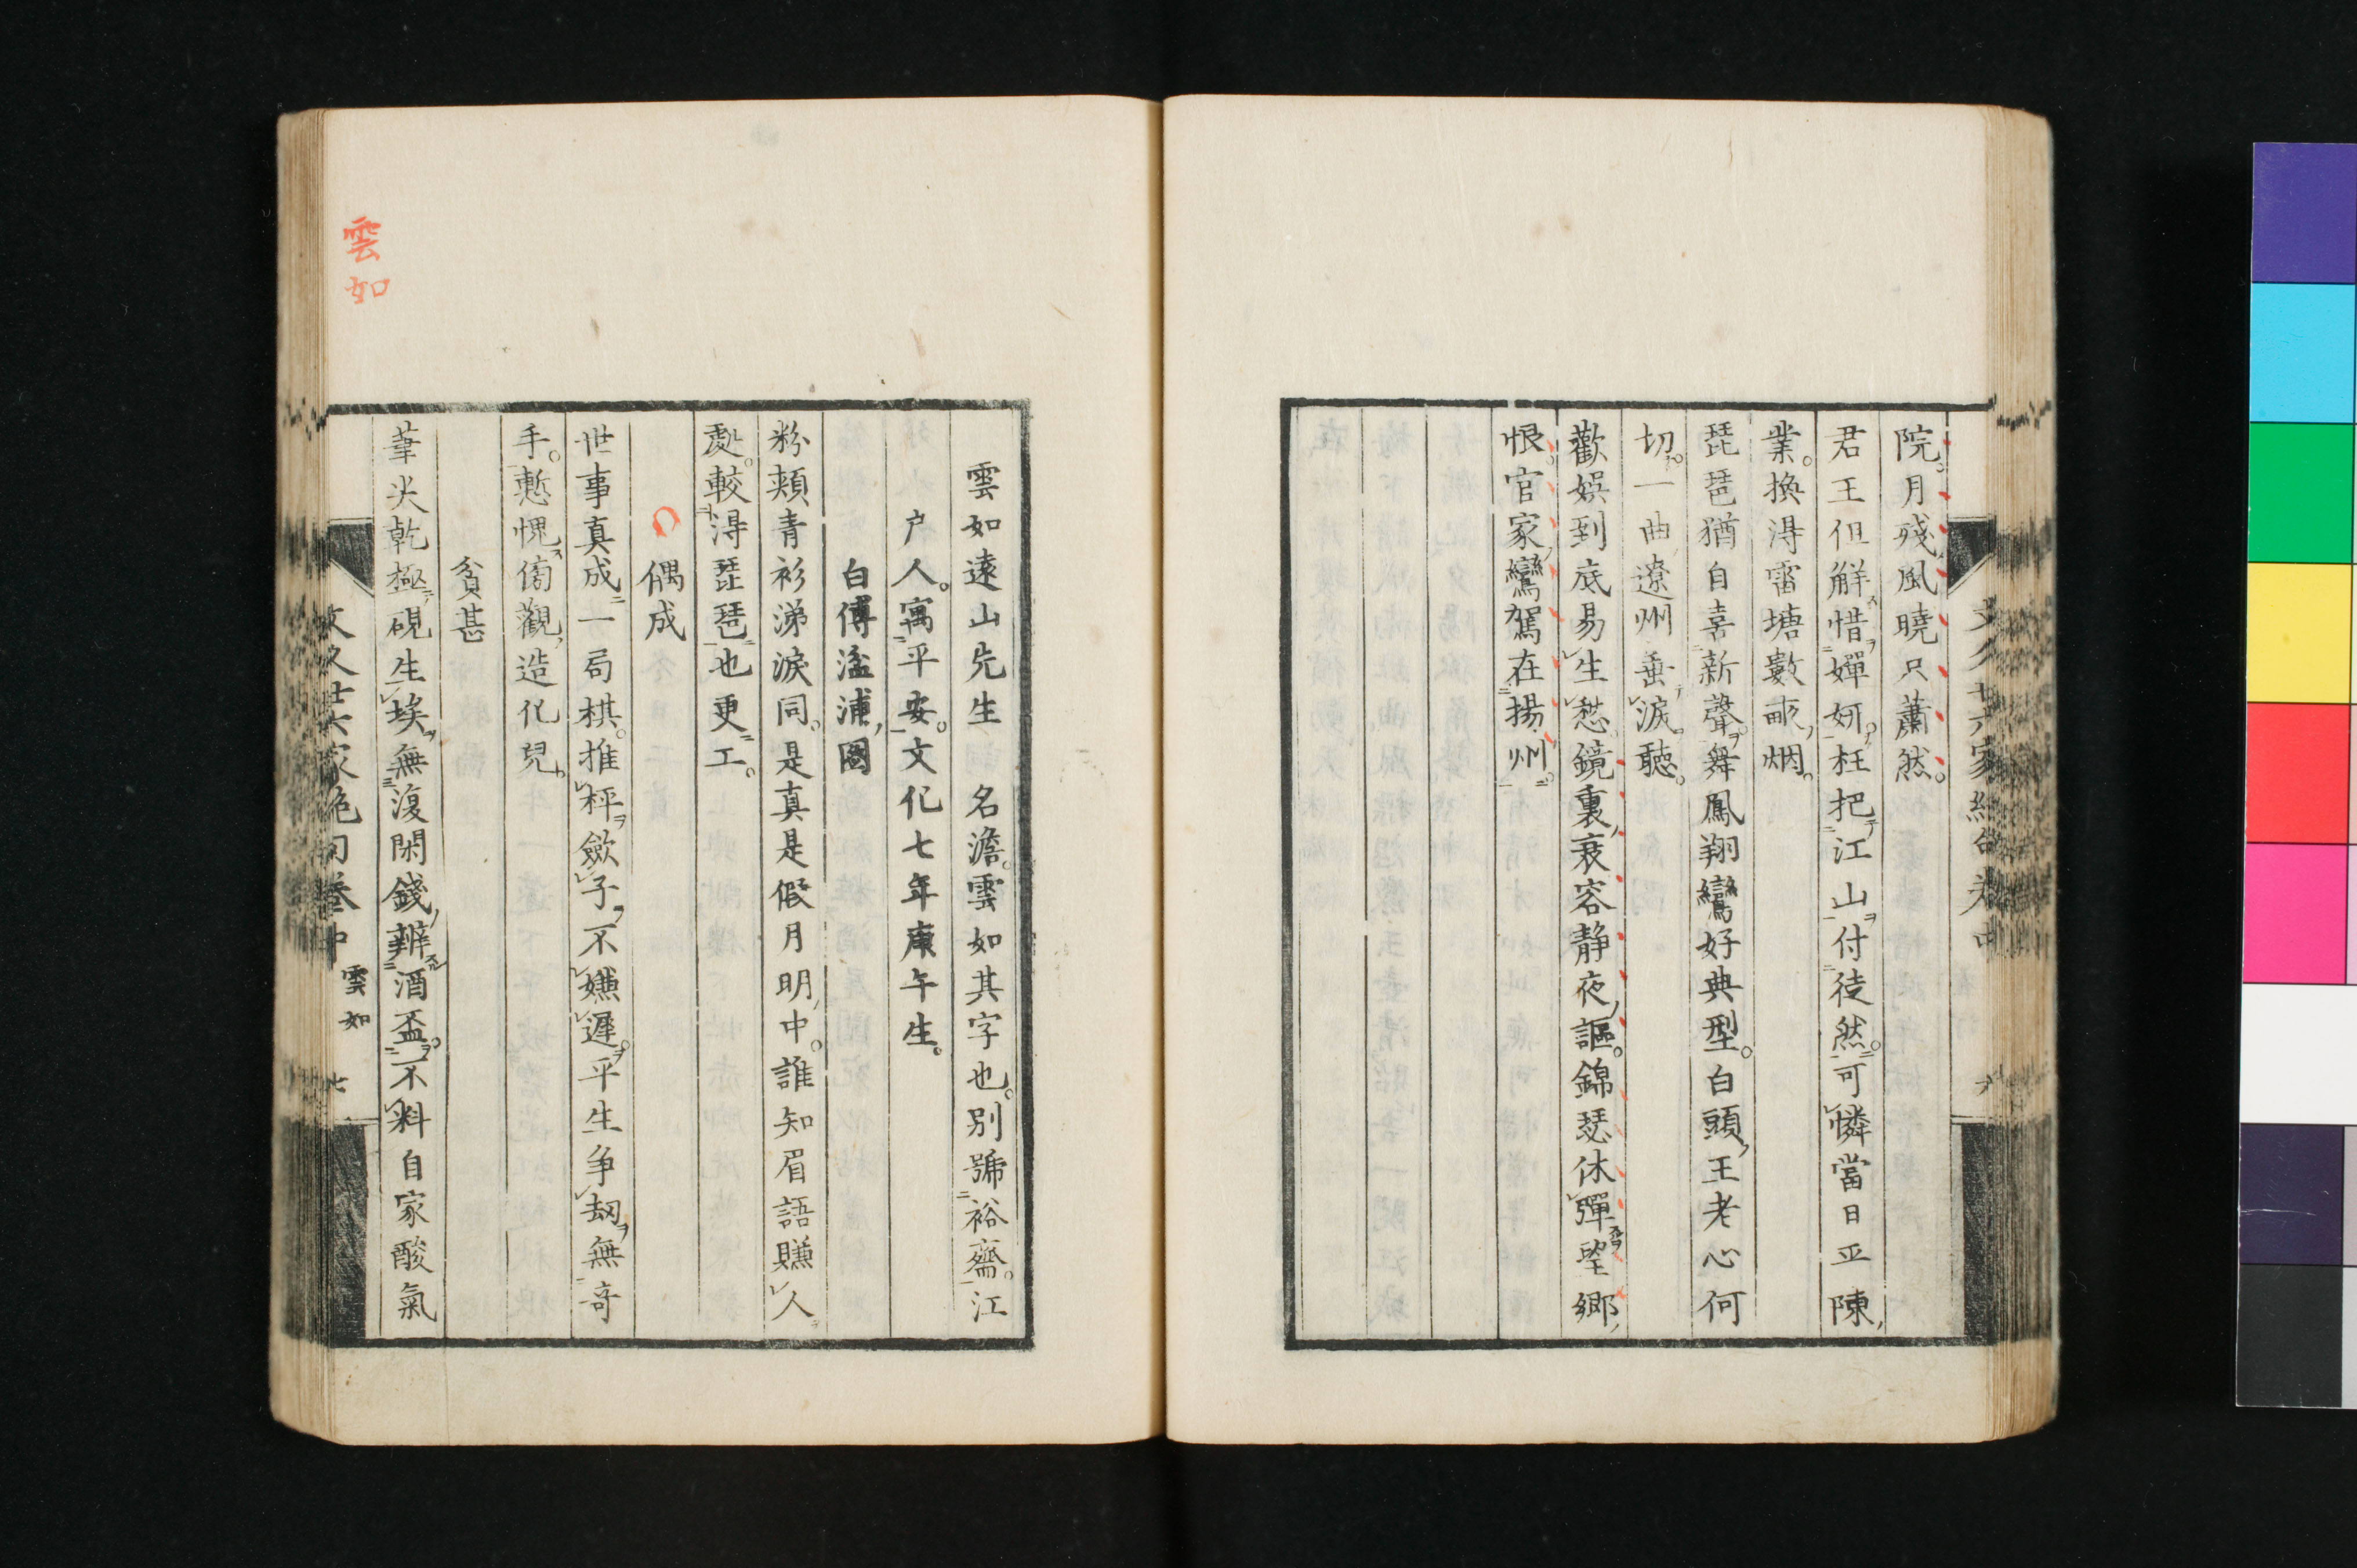 院月殘風曉只蕭然
君王但觧惜嬋姸枉把江山付徒然可憐當日平陳
業換淂雷塘數畝烟
琵琶猶自喜新聲舞鳳翔鸞好典型白頭王老心何
切一曲遼州垂淚聽
歡娯到底易生愁鏡裏衰容静夜謳錦瑟休彈望鄉
恨官家鸞駕在揚州
雲如
雲如遠山先生 名澹雲如其字也別號裕齋江
户人寓平安文化七年庚午生
白傅湓浦圖
粉頬青衫涕淚同是真是假月明中誰知眉語賺人
處較淂琵琶也更工
偶成
世事真成一局棋推枰斂子不嫌遲平生争刼無奇
手慙愧傍觀造化兒
貧甚
筆尖乾極硯生埃無復閑錢辨酒盃不料自家酸氣
文久廿六家絶句巻中 雲如 七